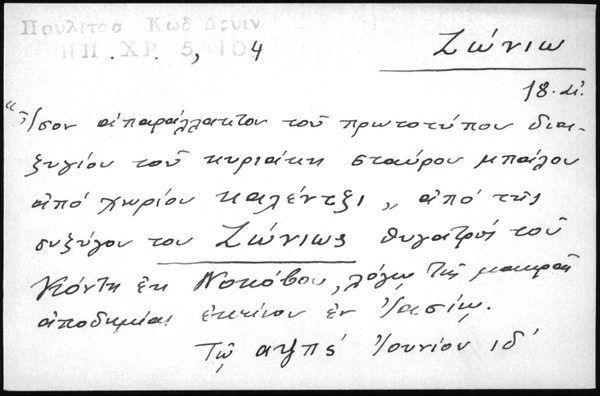 Πουλίτσα Κωδ Δρυιν
ΗΠ. ΧΡ. 5, 104
Ζώνιω
18. αἰ.
"Ἴσον ἀπαράλλακτον τοῦ πρωτοτύπου δια-
ζυγίου τοῦ κυριάκη σταύρου μπάλου
ἀπό χωρίου καλέντζι, ἀπό τῆς
συζύγου του Ζώνιως θυγατρός τοῦ
Κόντη ἐκ Νοκόβου, λόγῳ τῆς μακρᾶς
ἀποδημίας ἐκείνου ἐν Ἰασίῳ.
Τῷ αψπς́ Ἰουνίου ιδ'